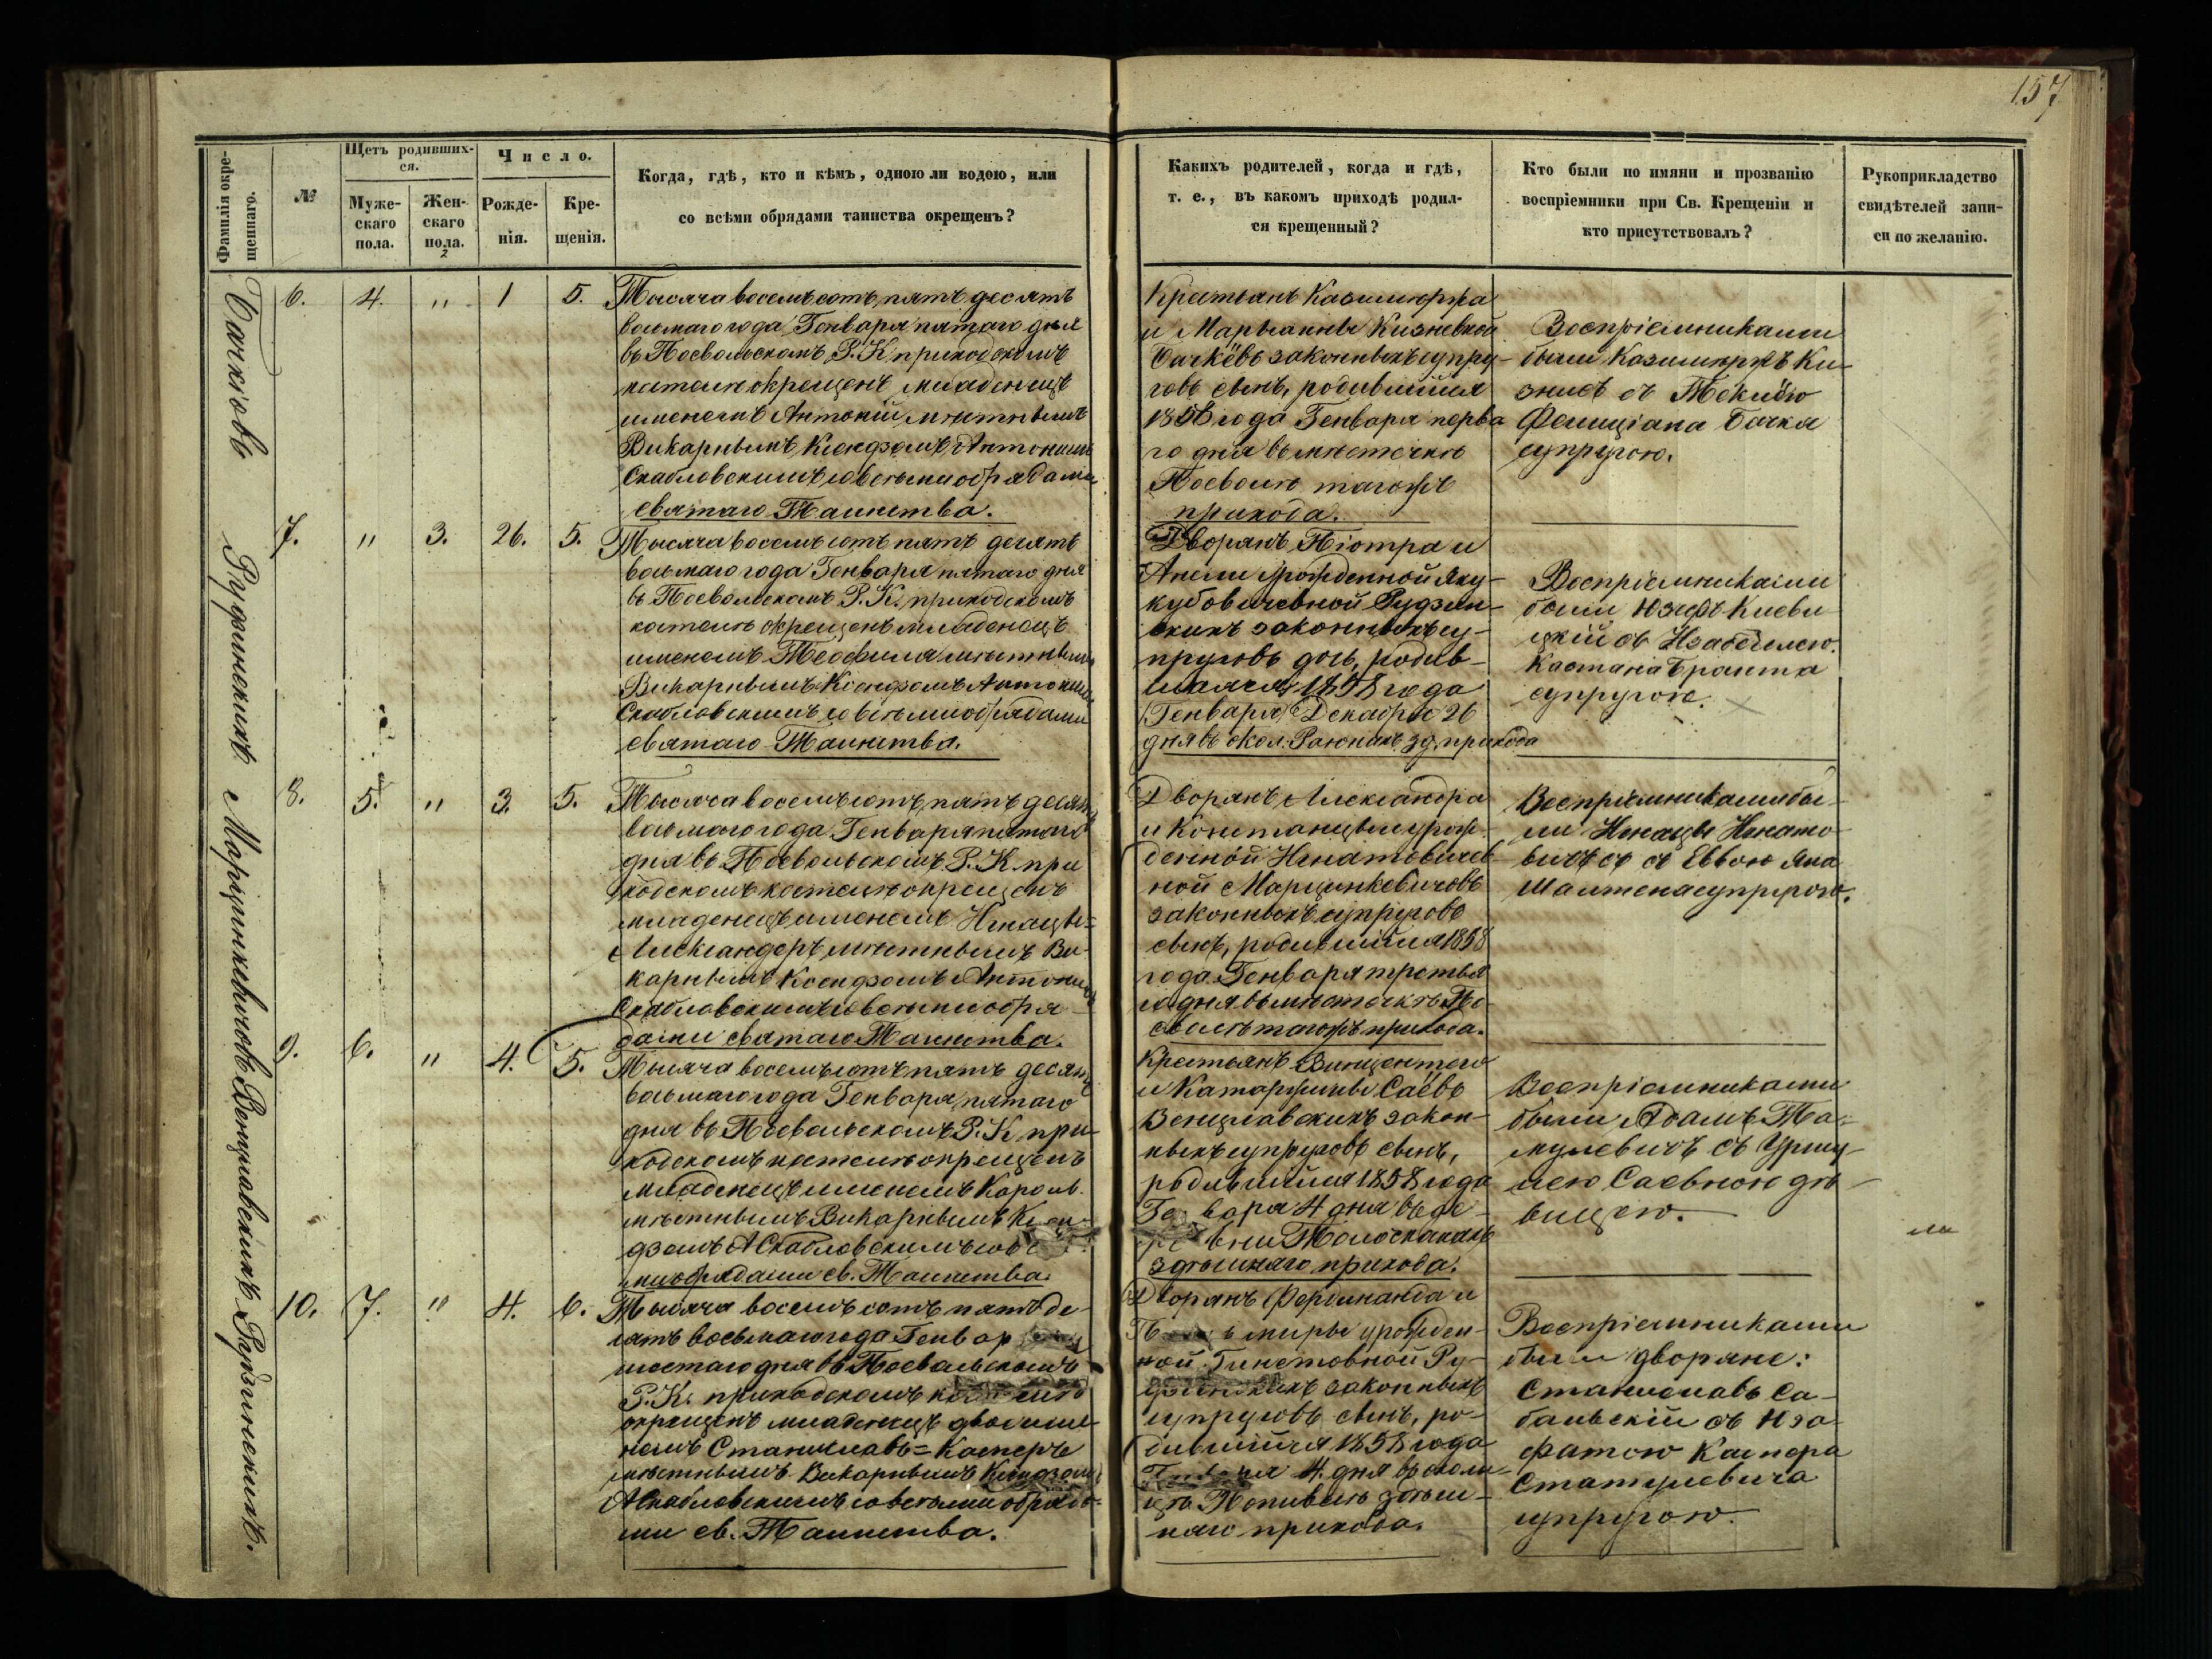 157
Фамилія окре-
щеннаго.
№
Щетъ родивших-
ся.
Муже-
скаго
пола.
Жен-
скаго
пола.
2
Число.
Рожде-
нія.
Кре-
щенія.
Когда, гдѣ, кто и кѣмъ, одною ли водою, или
со всѣми обрядами таинства окрещенъ?
Какихъ родителей, когда и гдѣ,
т. е., въ какомъ приходѣ родил-
ся крещенный?
Кто были по имяни и прозванію
воспріемники при Св. Крещеніи и
кто присутствовалъ?
Рукоприкладство
свидѣтелей запи-
си по желанію.
Бачкіовъ
6. 4. " 1 5.
Тысяча восемьсотъ пятъ десятъ
восьмаго года Генваря пятаго дня
въ Посвольскомъ Р. К. приходскомъ
костелѣ окрещенъ младенецъ
именемъ Антоній мѣстнымъ
Викарнымъ Ксендзомъ Антониимъ
Скабловскимъ со всѣми обрядами
святаго Таинства.
Крестьянъ Казимержа
и Марьянны Кизневной
Бачкёвъ законныхъ супру-
говъ сынъ, родившійся
1858 года Генваря перва
го дня въ мѣстечкѣ
Посволѣ тагожъ
прихода.
Воспріемниками
были Казимиржъ Ки-
знисъ съ Теклёю
Фелиціана Бачка
супругою.
Рудзинскихъ
7. " 3. 26. 5.
Тысяча восемъ сотъ пятъ десятъ
восьмаго года Генваря пятаго дня
въ Посвольскомъ Р. К. приходскомъ
костелѣ окрещенъ младенецъ
именемъ Теофиля мѣстнымъ
Викарнымъ Ксендзомъ Антониимъ
Скабловскимъ со всѣми обрядами
святаго Таинства.
Дворянъ Піотра и
Анели урожденной Яку-
кубовичевной Рудзин-
скихъ законныхъ су-
пруговъ дочь, родив-
шаяся 1858 года
(Генваря) Декабря 26
дня въ окол. зд. прихода
Воспріемниками
были Юзефъ Киеви
цкій съ Изабеллею
Каэтана Бранта
супругою.
Марцинкевичовъ
8. 5. " 3. 5.
Тысяча восемъ сотъ пятъ десятъ
восьмаго года Генваря пятаго
дня въ Посвольскомъ Р. К. при
ходскомъ костелѣ окрещенъ
младенецъ именемъ Игнацы=
Александеръ мѣстнымъ Ви-
карнымъ Ксендзомъ Антониимъ
Скабловскимъ со всѣми обря-
дами святаго Таинства.
Дворянъ Александра
и Констанцыи урож-
денной Игнатовичев
ной Марцинкевичовъ
законныхъ супруговъ
сынъ, родившійся 1858
года Генваря третья
го дня въ мѣстечкѣ По-
сволѣ тагожъ прихода.
Воспріемниками бы-
ли Игнацы Игнато-
вичъ съ съ Еввою Яна
супругою.
Венцлавскихъ
9. 6. " 4. 5.
Тысяча восемъ сотъ пятъ десятъ
восьмаго года Генваря пятаго
дня въ Посвольскомъ Р. К. при-
ходскомъ костелѣ окрещенъ
младенецъ именемъ Кароль
мѣстнымъ Викарнымъ Ксен-
дзомъ А Скабловскимъ со в
ми обрядами св. Таинства.
Крестьянъ Винцентего
и Катаржины Саёвъ
Венцлавскихъ закон-
ныхъ супруговъ сынъ,
родившійся 1858 года
варя 4 дня въ де-
вни
здѣшняго прихода.
Воспріемниками
были Адамъ Та-
мулевичъ съ Уршу-
лею Саевною дѣ-
вицею.
ла
Рудзинскихъ.
10. 7. " 4. 6.
Тысяча восемъ сотъ пятъ де-
сятъ восьмаго года Генвар
шестаго дня въ Посвольскомъ
Р. К. приходскомъ костелѣ
окрещенъ младенецъ двоиме-
немъ Станиславъ=Касперъ
мѣстнымъ Викарнымъ Ксендзомъ
А Скабловскимъ со всѣми обряда-
ми св. Таинства.
Дворянъ Фердинанда и
урожден-
ной Гинетовной Ру-
дзинскихъ законныхъ
супруговъ сынъ, ро-
дившійся 1858 года
4. дня въ околи-
цѣ здѣш-
няго прихода.
Воспріемниками
были дворяне:
Станиславъ Са-
бальскій съ Юзе-
фатою Каспера
Статулевича
супругою.